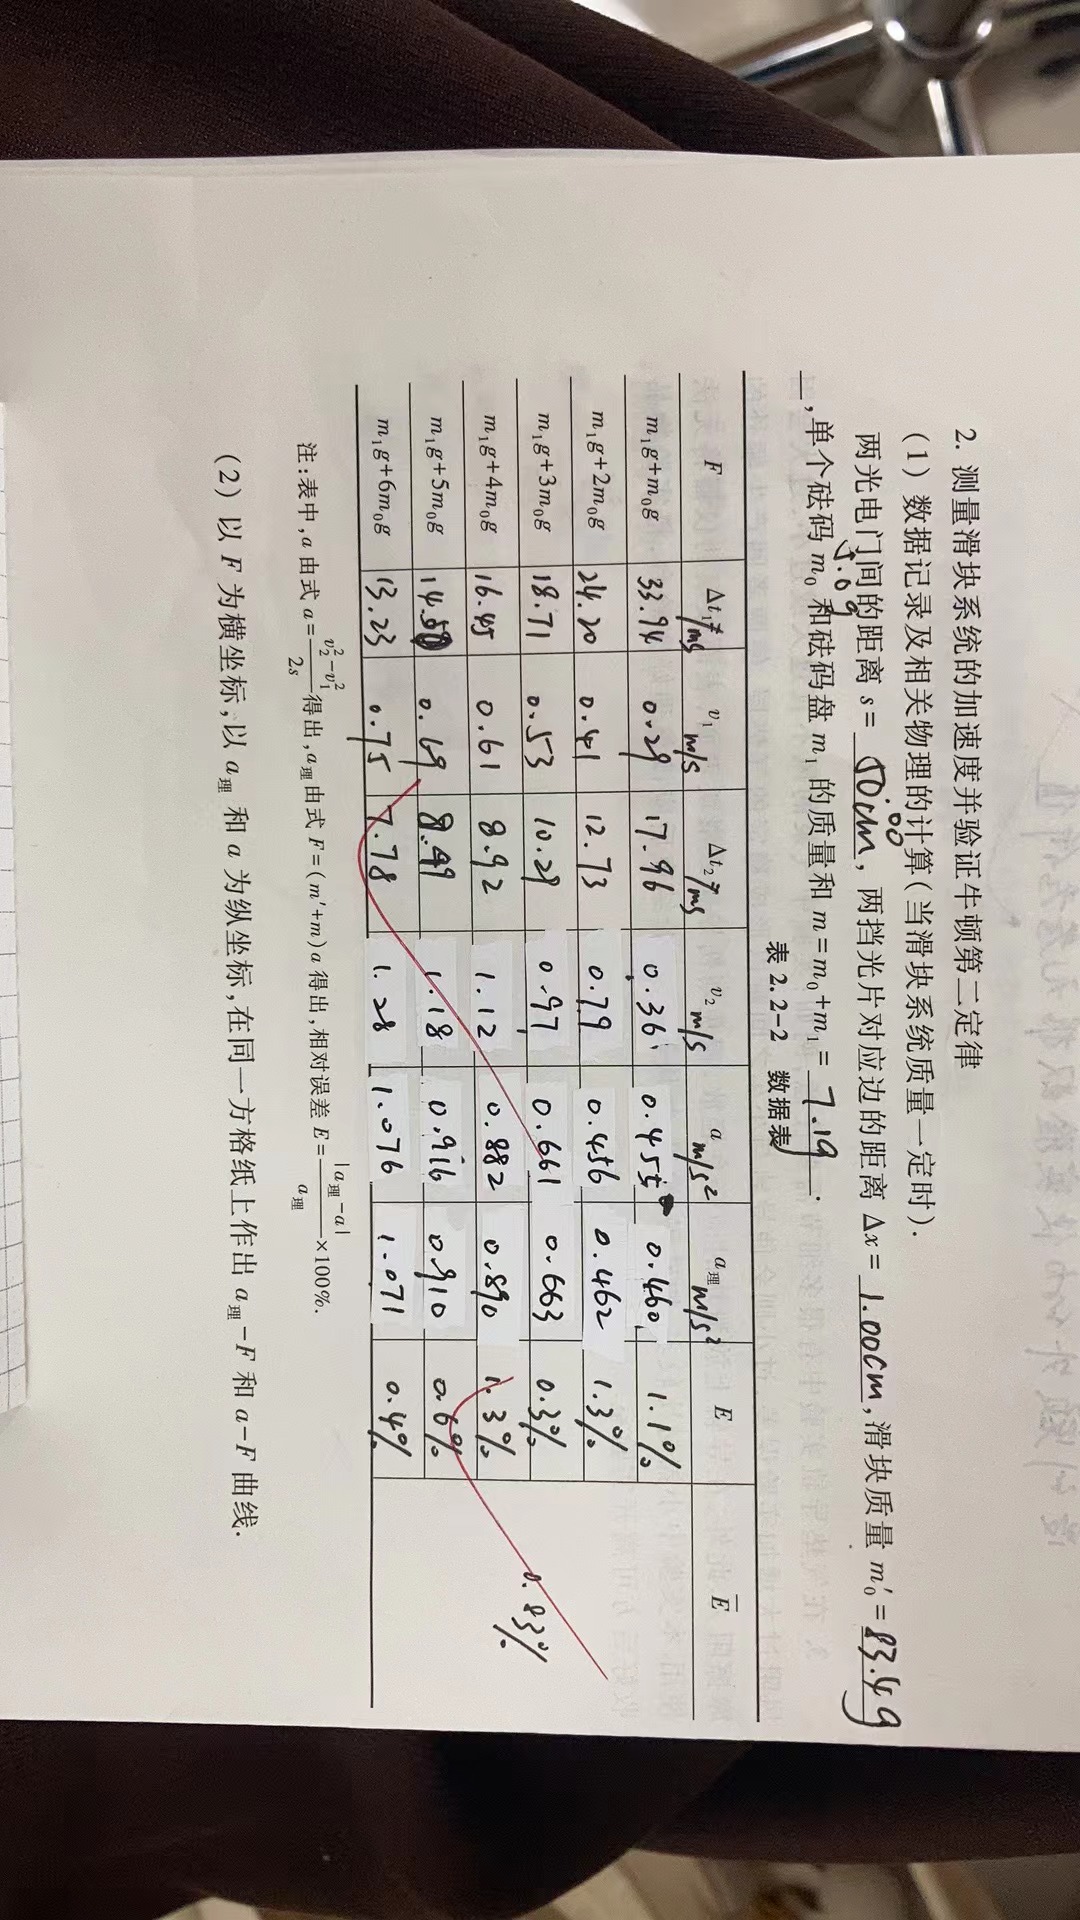 2. 测量滑块系统的加速度并验证牛顿第二定律
(1) 数据记录及相关物理的计算(当滑块系统质量一定时).
两光电门间的距离 s= 50.00cm, 两挡光片对应边的距离 Δx= 1.00cm, 滑块质量 m′₀= 83.4g
, 单个砝码 m₀ 和砝码盘 m₁ 的质量和 m=m₀+m₁= 7.1g .
表 2.2-2 数据表
F Δt₁/ms v₁ m/s Δt₂/ms v₂ m/s a m/s² a理 m/s² E E̅
m₁g+m₀g 33.94 0.29 17.96 0.36 0.455 0.460 1.1%
m₁g+2m₀g 24.20 0.41 12.73 0.79 0.456 0.462 1.3%
m₁g+3m₀g 18.71 0.53 10.29 0.97 0.661 0.663 0.3%
m₁g+4m₀g 16.45 0.61 8.92 1.12 0.882 0.890 1.3% 0.83%
m₁g+5m₀g 0.69 8.49 1.18 0.916 0.910 0.6%
m₁g+6m₀g 13.23 0.75 7.78 1.28 1.076 1.071 0.4%
注:表中,a 由式 a=(v₂²−v₁²)/2s 得出,a理由式 F=(m′+m)a 得出,相对误差 E=|a理−a|/a理×100%.
(2) 以 F 为横坐标,以 a理 和 a 为纵坐标,在同一方格纸上作出 a理−F 和 a−F 曲线.